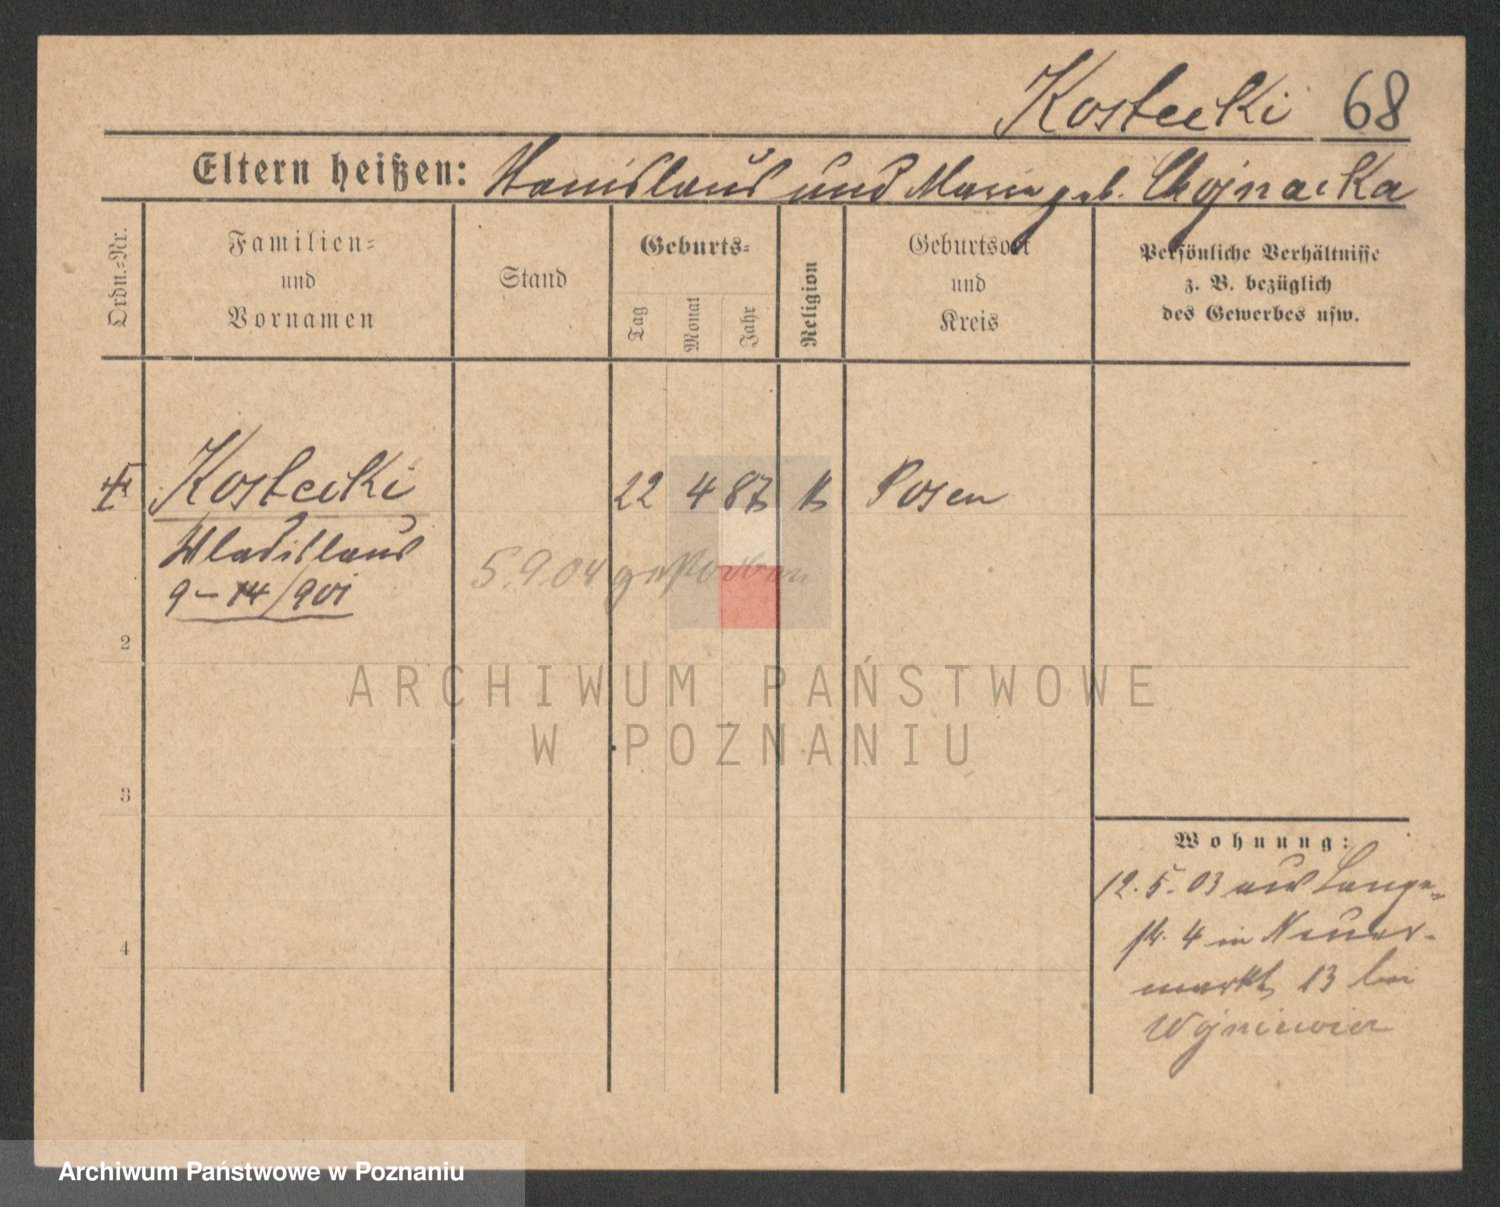 Kostecki 68
Eltern heißen: Stanislaus und Maria geb. Chojnacka
Ordn.-Nr.
Familien-
und
Vornamen
Stand
Geburts-
Tag
Monat
Jahr
Religion
Geburtsort
und
Kreis
Persönliche Verhältnisse
z. B. bezüglich
des Gewerbes usw.
Kostecki 22 4 87 k Posen
Wladislaus
9-14/901
5.9.04 gestorben
2
3
4
Wohnung:
12.5.03 aus Lange-
str. 4 in Neuer-
markt 13 bei
ARCHIWUM PAŃSTWOWE
W POZNANIU
Archiwum Państwowe w Poznaniu